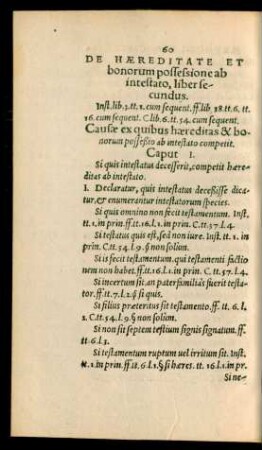 60
DE HÆREDITATE ET
bonorum possessione ab
intestato, liber se-
cundus.
Inst. lib. 3. tt. 1. cum sequent. ff. lib. 38. tt. 6. tt.
16. cum sequent. C. lib. 6. tt. 54. cum sequent.
Causæ ex quibus hæreditas & bo-
norum possessio ab intestato competit.
Caput I.
Si quis intestatus decesserit, competit hære-
ditas ab intestato.
1. Declaratur, quis intestatus decessisse dica-
tur, & enumerantur intestatorum species.
Si quis omnino non fecit testamentum. Inst.
tt. 1. in prin. ff. tt. 16. l. 1. in prin. C. tt. 57. l. 4.
Si testatus quis est, sed non iure. Inst. tt. 1. in
prin. C. tt. 54. l. 9. § non solùm.
Si is fecit testamentum. qui testamenti factio
nem non habet. ff. tt. 16. l. 1. in prin. C. tt. 57. l. 4.
Si incertum sit an paterfamiliâs fuerit testa-
tor. ff. tt. 7. l. 2. § si quis.
Si filius præteritus sit testamento. ff. tt. 6. l.
2. C. tt. 54. l. 9. § non solùm.
Si non sit septem testium signis signatum. ff.
tt. 6. l. 3.
Si testamentum ruptum uel irritum sit. Inst.
tt. 1. in prin. ff. tt. 6. l. 1. § si hæres. tt. 16. l. 1. in pr.
Si ne-